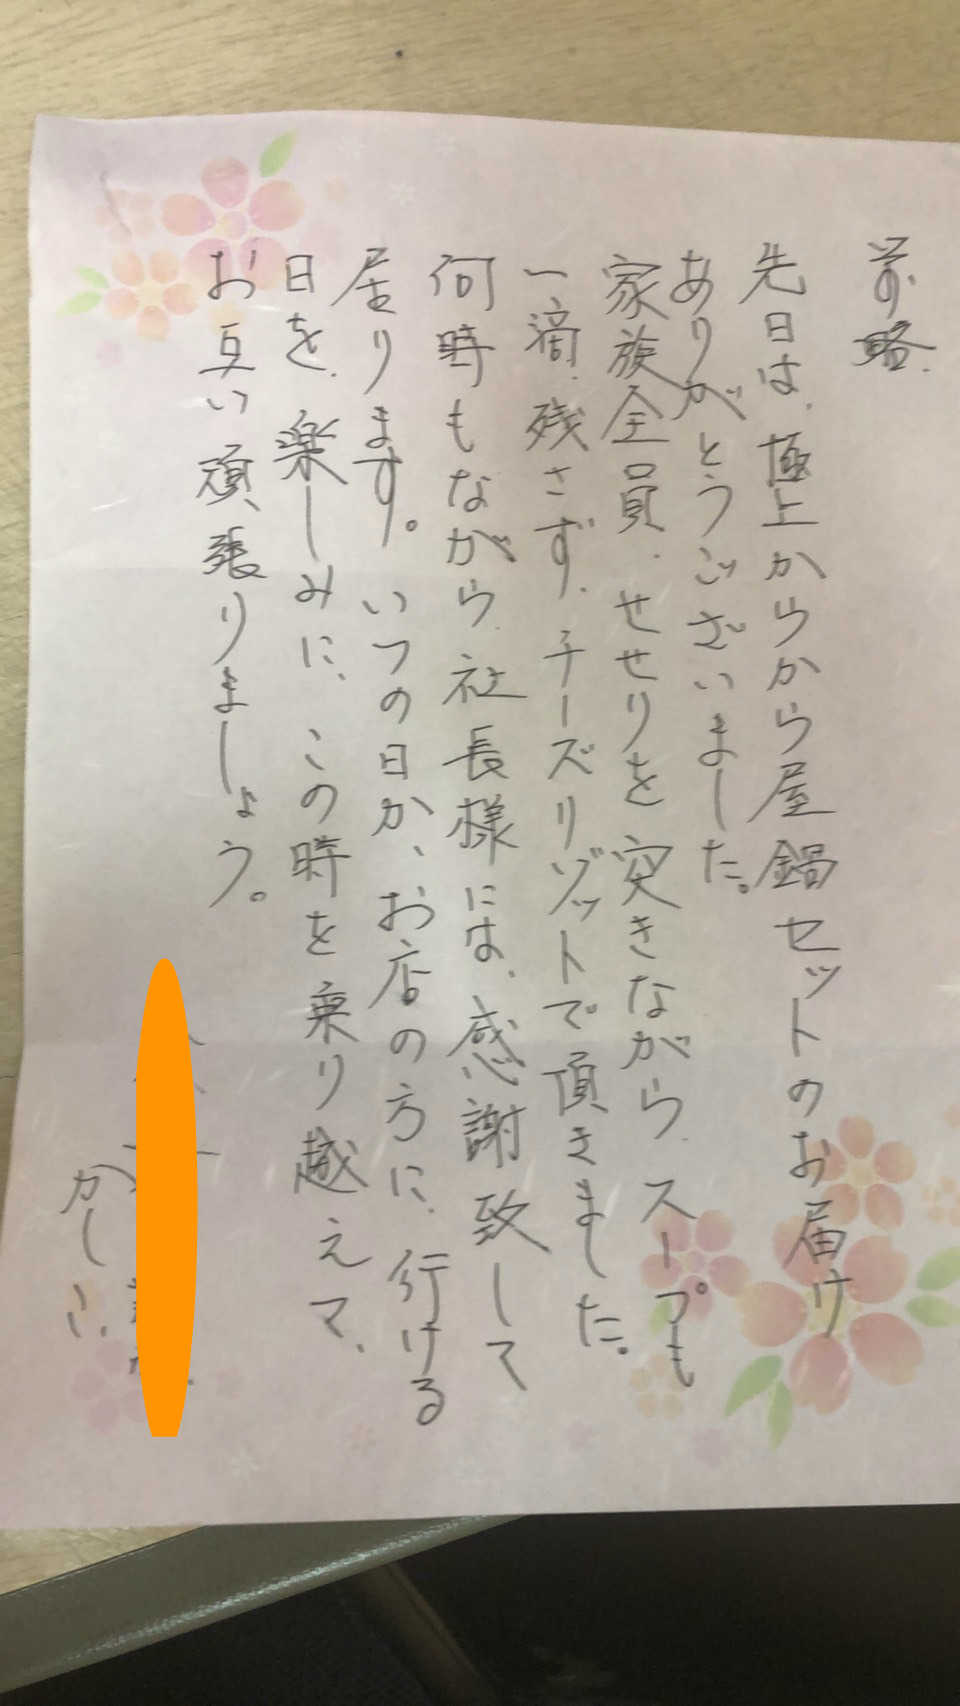 前略
先日は、極上からから屋鍋セットのお届け
ありがとうございました。
家族全員、せせりを突きながら、スープも
一滴、残さず、チーズリゾットで頂きました。
何時もながら、社長様には、感謝致して
居ります。いつの日か、お店の方に、行ける
日を、楽しみに、この時を乗り越えて、
お互い頑張りましょう。
かしこ、